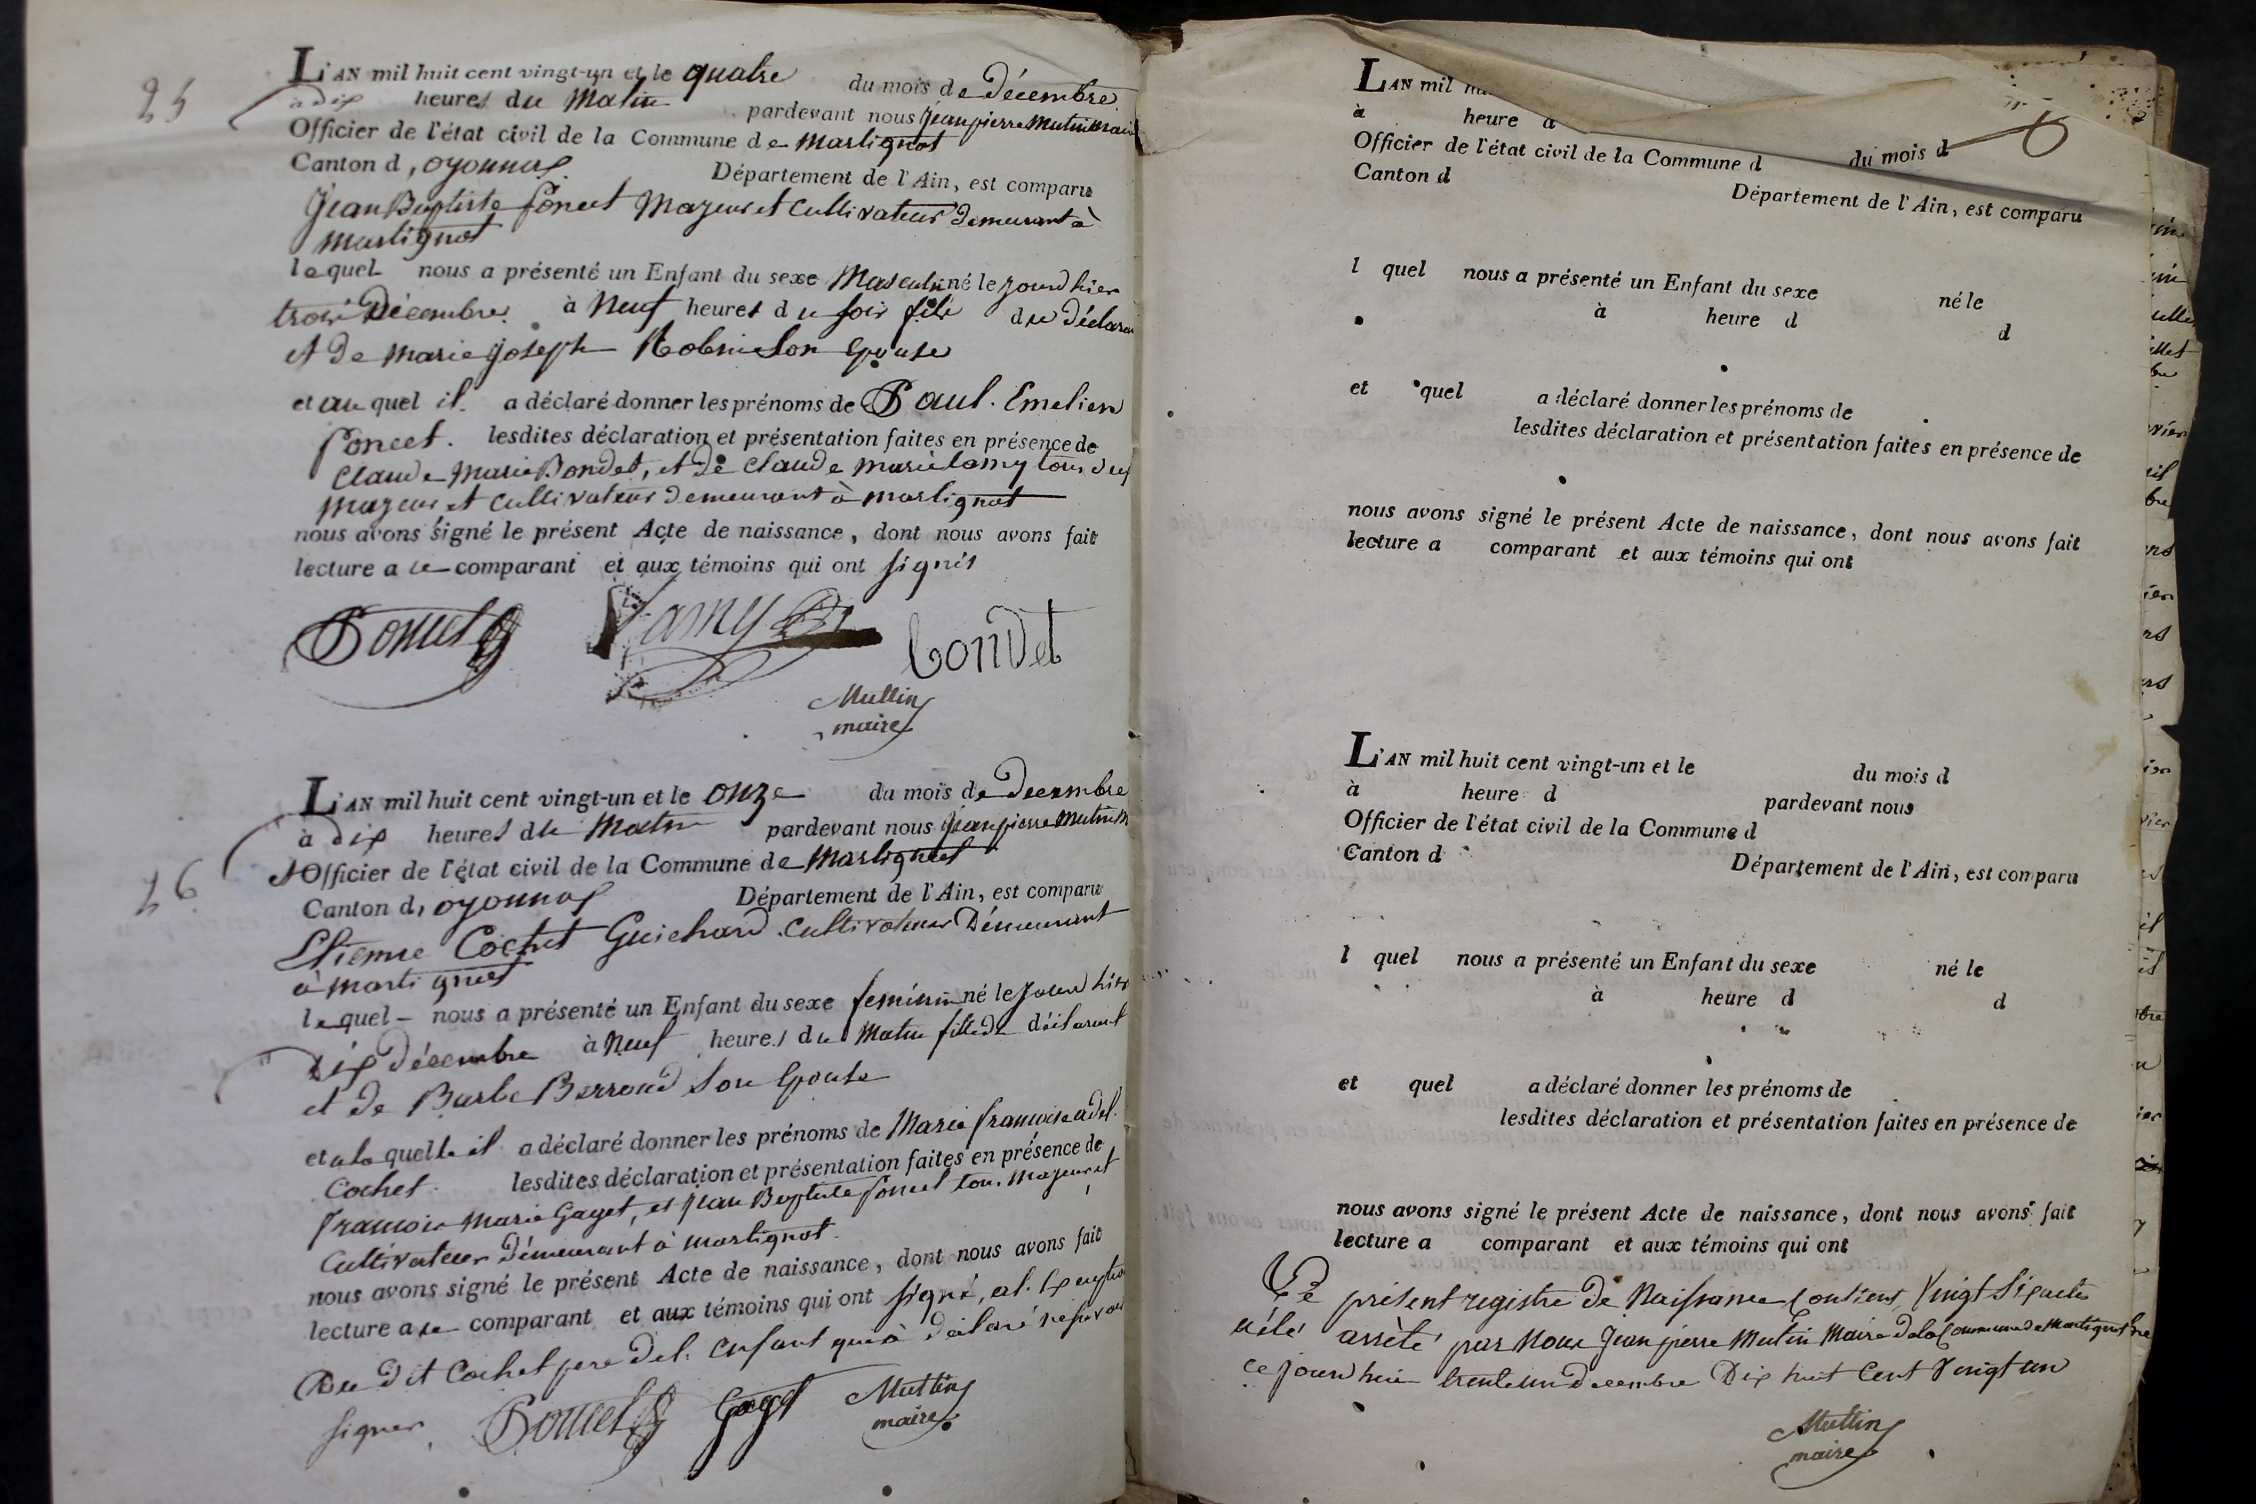 25
L'AN mil huit cent vingt-un et le quatre du mois de Décembre
à dix heures du Matin pardevant nous Jean pierre Mutin Maire
Officier de l'état civil de la Commune de Martignat
Canton d, oyonnax Département de l'Ain, est comparu
Jean Baptiste Poncet Majeur et Cultivateur demeurant à
Martignat
lequel nous a présenté un Enfant du sexe Masculin né le jourd hier
trois Décembre à Neuf heures du soir fils du déclarant
et de Marie Joseph son Epouse
et au quel il a déclaré donner les prénoms de Paul Emelien
Poncet. lesdites déclaration et présentation faites en présence de
Claude Marie Bondet, et de Claude Marie lamy tous deux
Majeur et Cultivateur demeurant à Martignat
nous avons signé le présent Acte de naissance, dont nous avons fait
lecture a ce comparant et aux témoins qui ont signés
Poncet Lamy bondet
Muttin
maire
26
L'AN mil huit cent vingt-un et le onze du mois de Decembre
à dix heures du Matin pardevant nous Jean pierre Mutin M
Officier de l'état civil de la Commune de Martignat
Canton d, oyonnax Département de l'Ain, est comparu
Etienne Cochet Guichard Cultivateur Démeurant
à Martignat
lequel nous a présenté un Enfant du sexe feminin né le jour hier
Dix décembre à Neuf heures du Matin fille du déclarant
et de Barbe Berroud son Epouse
et a la quelle il a déclaré donner les prénoms de Marie francoise adel.
Cochet. lesdites déclaration et présentation faites en présence de
francois Marie Gaget, et Jean Baptiste Poncet tous Majeur et
Cultivateur Démeurant à Martignat.
nous avons signé le présent Acte de naissance, dont nous avons fait
lecture a ce comparant et aux témoins qui ont signé, a l. Exception
Du dit Cochet pere del. Enfant qui a déclaré ne savoir
signer Poncet Gaget Muttin
maire
L'AN mil
à heure d
du mois d
Officier de l'état civil de la Commune d
Canton d Département de l'Ain, est comparu
l quel nous a présenté un Enfant du sexe né le
à heure d d
et quel a déclaré donner les prénoms de
lesdites déclaration et présentation faites en présence de
nous avons signé le présent Acte de naissance, dont nous avons fait
lecture a comparant et aux témoins qui ont
L'AN mil huit cent vingt-un et le du mois d
à heure d pardevant nous
Officier de l'état civil de la Commune d
Canton d Département de l'Ain, est comparu
l quel nous a présenté un Enfant du sexe né le
à heure d d
et quel a déclaré donner les prénoms de
lesdites déclaration et présentation faites en présence de
nous avons signé le présent Acte de naissance, dont nous avons fait
lecture a comparant et aux témoins qui ont
Le présent registre de Naissance Contient Vingt Six acte
a été arrêté par Nous Jean pierre Mutin Maire de la Commune de Martignat
ce jourd huis trente un decembre Dix huit Cent Vingt un
Muttin
maire